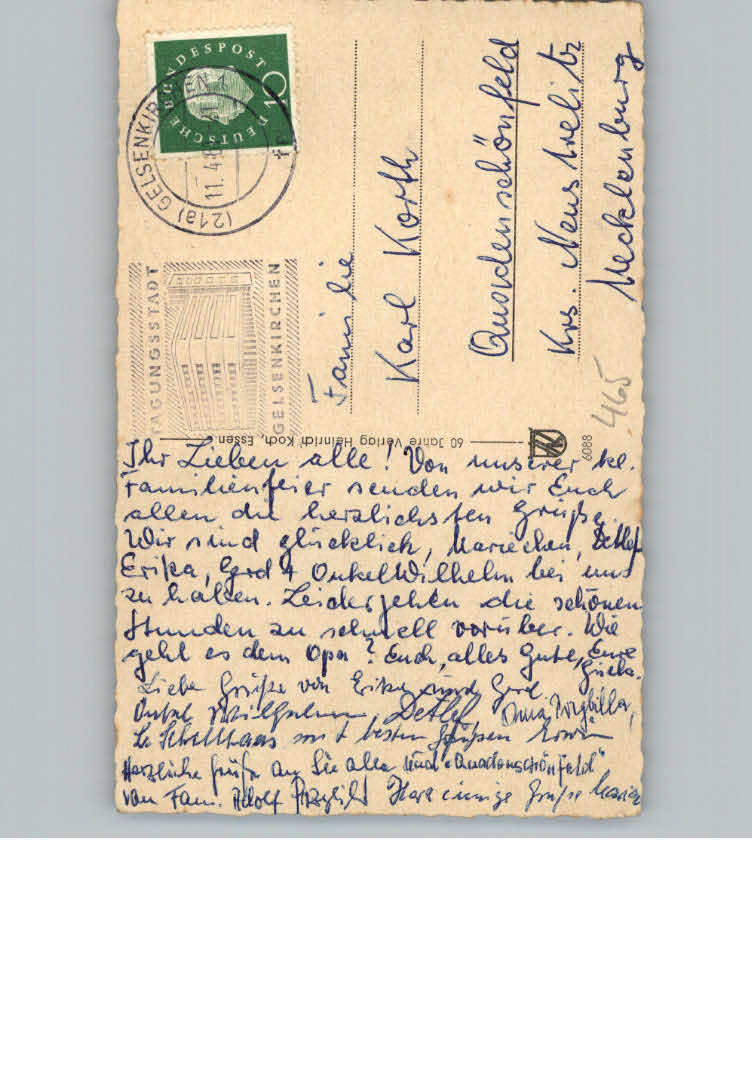 DEUTSCHE BUNDESPOST
10
(21a) GELSENKIRCHEN 1
11.4.60
TAGUNGSSTADT
GELSENKIRCHEN
Familie
Karl Korth
Quadenschönfeld
Krs. Neustrelitz
Mecklenburg
465
60 Jahre Verlag Heinrich Koch, Essen
6088
Ihr Lieben alle! Von unserer kl.
Familienfeier senden wir Euch
allen die herzlichsten Grüße.
Wir sind glücklich, Mariechen, Detlef
Erika, Gerd + Onkel Wilhelm bei uns
zu haben. Leider gehen die schönen
Stunden zu schnell vorüber. Wie
geht es dem Opa? Euch, alles Gute, Eure
Liebe Grüße von Erika und Gerd.
Onkel Wilhelm Detlef Anna
mit besten Grüßen Erwin
Herzliche Grüße an Sie alle und "Quadenschönfeld"
von Fam. Adolf innige Grüße